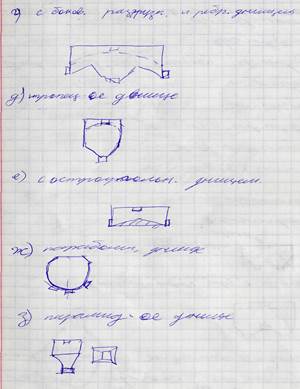 г) с боков. разгрузк. и ребр. днищем
д) трапец-ое днище
е) с остроуголен. днищем
ж) параболич. днище
з) пирамид-ое днище